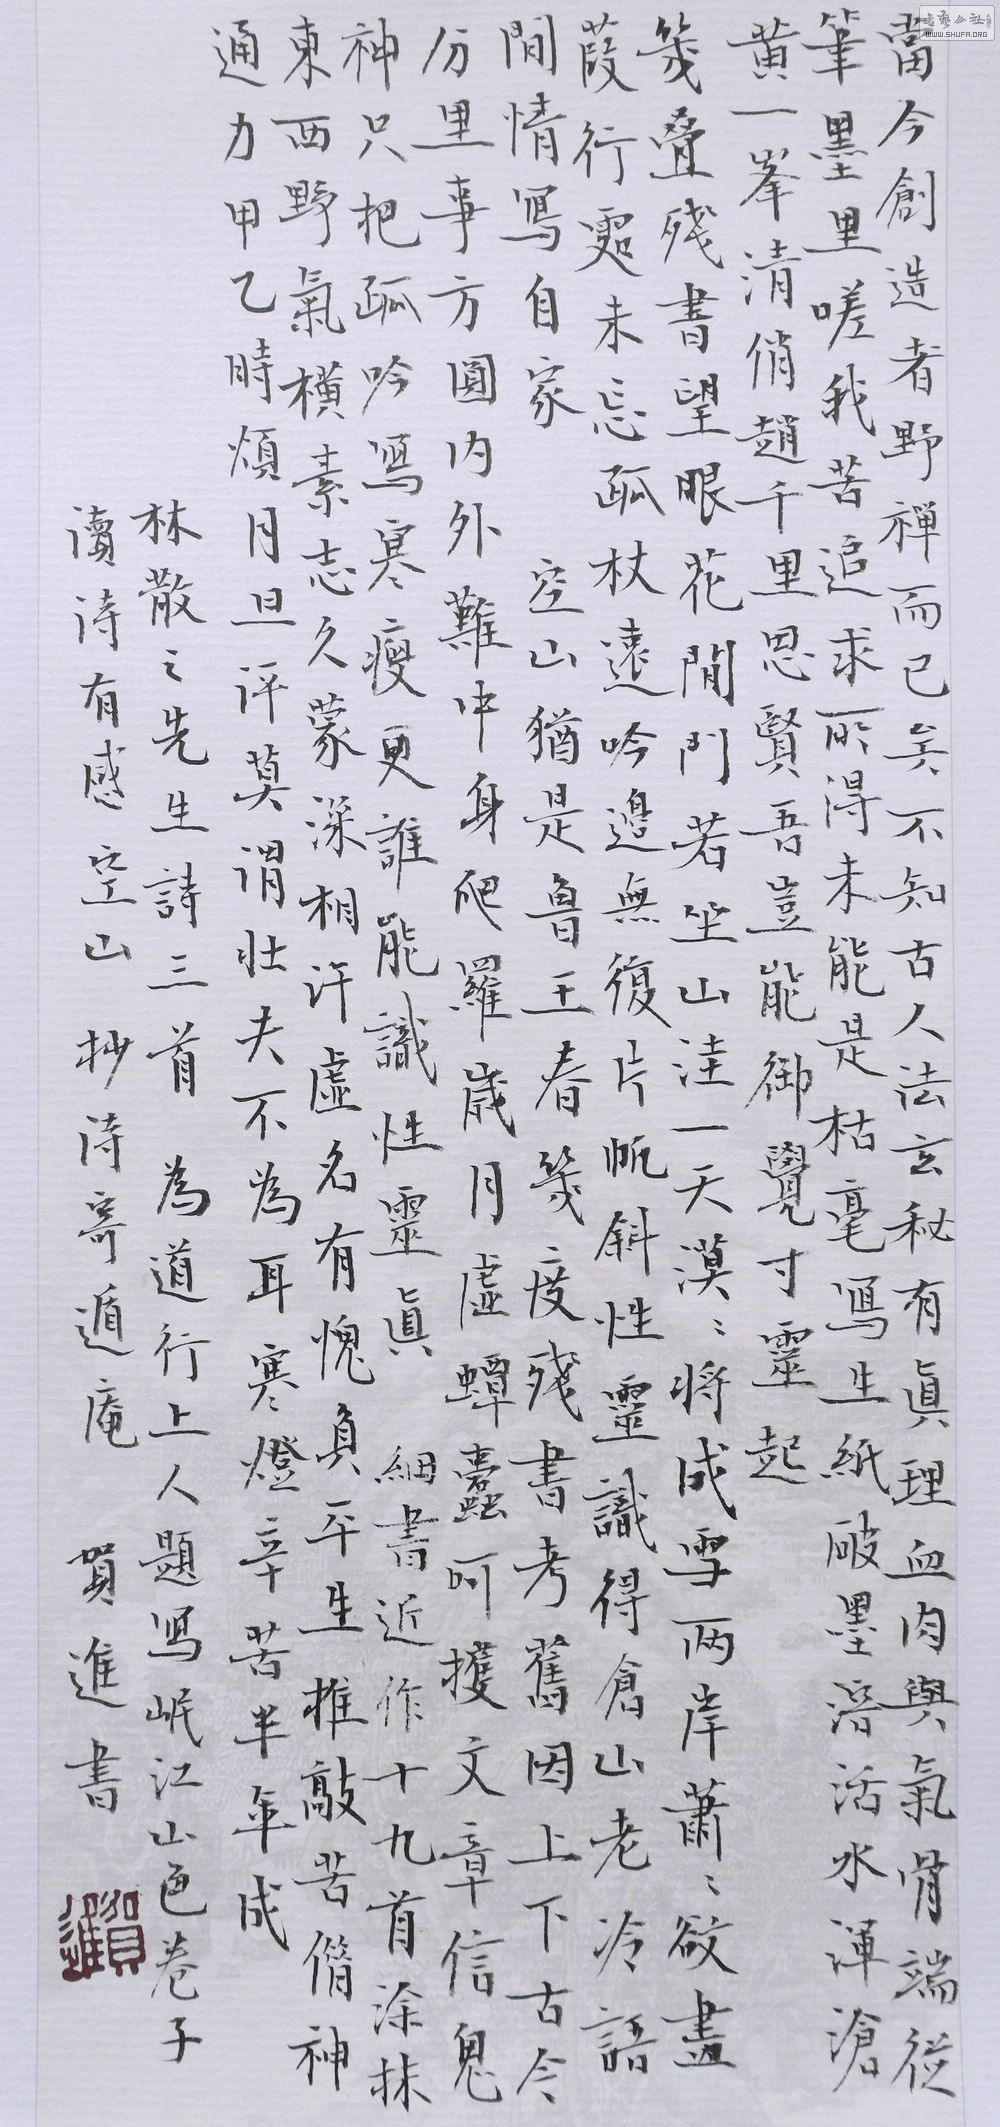 當今創造者野禪而已矣不知古人法玄秘有真理血肉與氣骨端從
筆墨里嗟我苦追求所得未能是枯毫寫生紙破墨潑活水渾滄
黃一峯清俏趙千里思賢吾豈能御覺寸靈起
幾疊殘書望眼花閒門若坐山洼一天漠〻將成雪兩岸蕭〻欲盡
葭行處未忘孤杖遠吟邊無復片帆斜性靈識得倉山老冷語
閒情寫自家 空山猶是魯王春幾度殘書考舊因上下古今
分里事方圓內外難中身爬羅歲月虛蟫蠹呵擭文章信鬼
神只把孤吟寫寒瘦更誰能識性靈真 細書近作十九首涂抹
東西野氣橫素志久蒙深相許虛名有愧負平生推敲苦僭神
通力甲乙時煩月旦評莫謂壯夫不為耳寒燈辛苦半年成
林散之先生詩三首 為道行上人題寫岷江山色卷子
讀詩有感 空山 抄詩寄遁庵 賀進書
賀進
書法公社
WWW.SHUFA.ORG